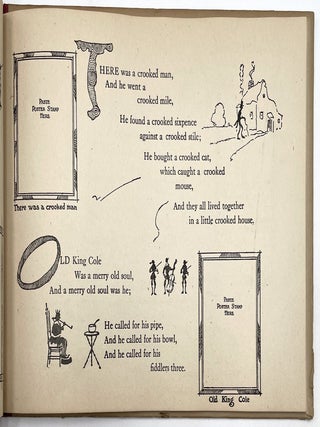 PASTE
POSTER STAMP
HERE
There was a crooked man
THERE was a crooked man,
And he went a
crooked mile,
He found a crooked sixpence
against a crooked stile;
He bought a crooked cat,
which caught a crooked
mouse,
And they all lived together
in a little crooked house,
OLD King Cole
Was a merry old soul,
And a merry old soul was he;
He called for his pipe,
And he called for his bowl,
And he called for his
fiddlers three.
PASTE
POSTER STAMP
HERE
Old King Cole